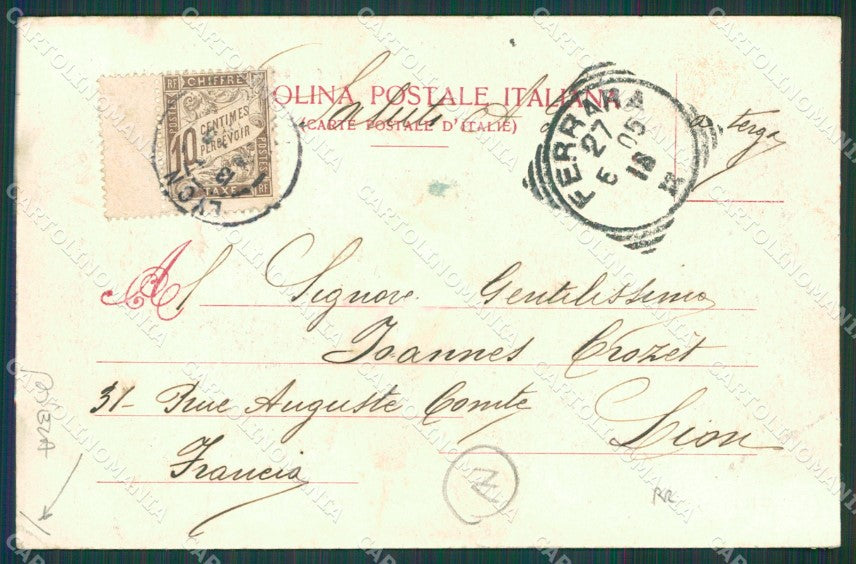 CARTOLINOMANIA
RF CHIFFRE
POSTES
10 CENTIMES
À PERCEVOIR
POSTES
TAXE RF
LYON
OLINA POSTALE ITALIANA
(CARTE POSTALE D'ITALIE)
a tergo
FERRARA
27
6 05
18
Al Signore Gentilissimo
Joannes Crozet
31- Rue Auguste Comte
Lion
Francia
N
RR